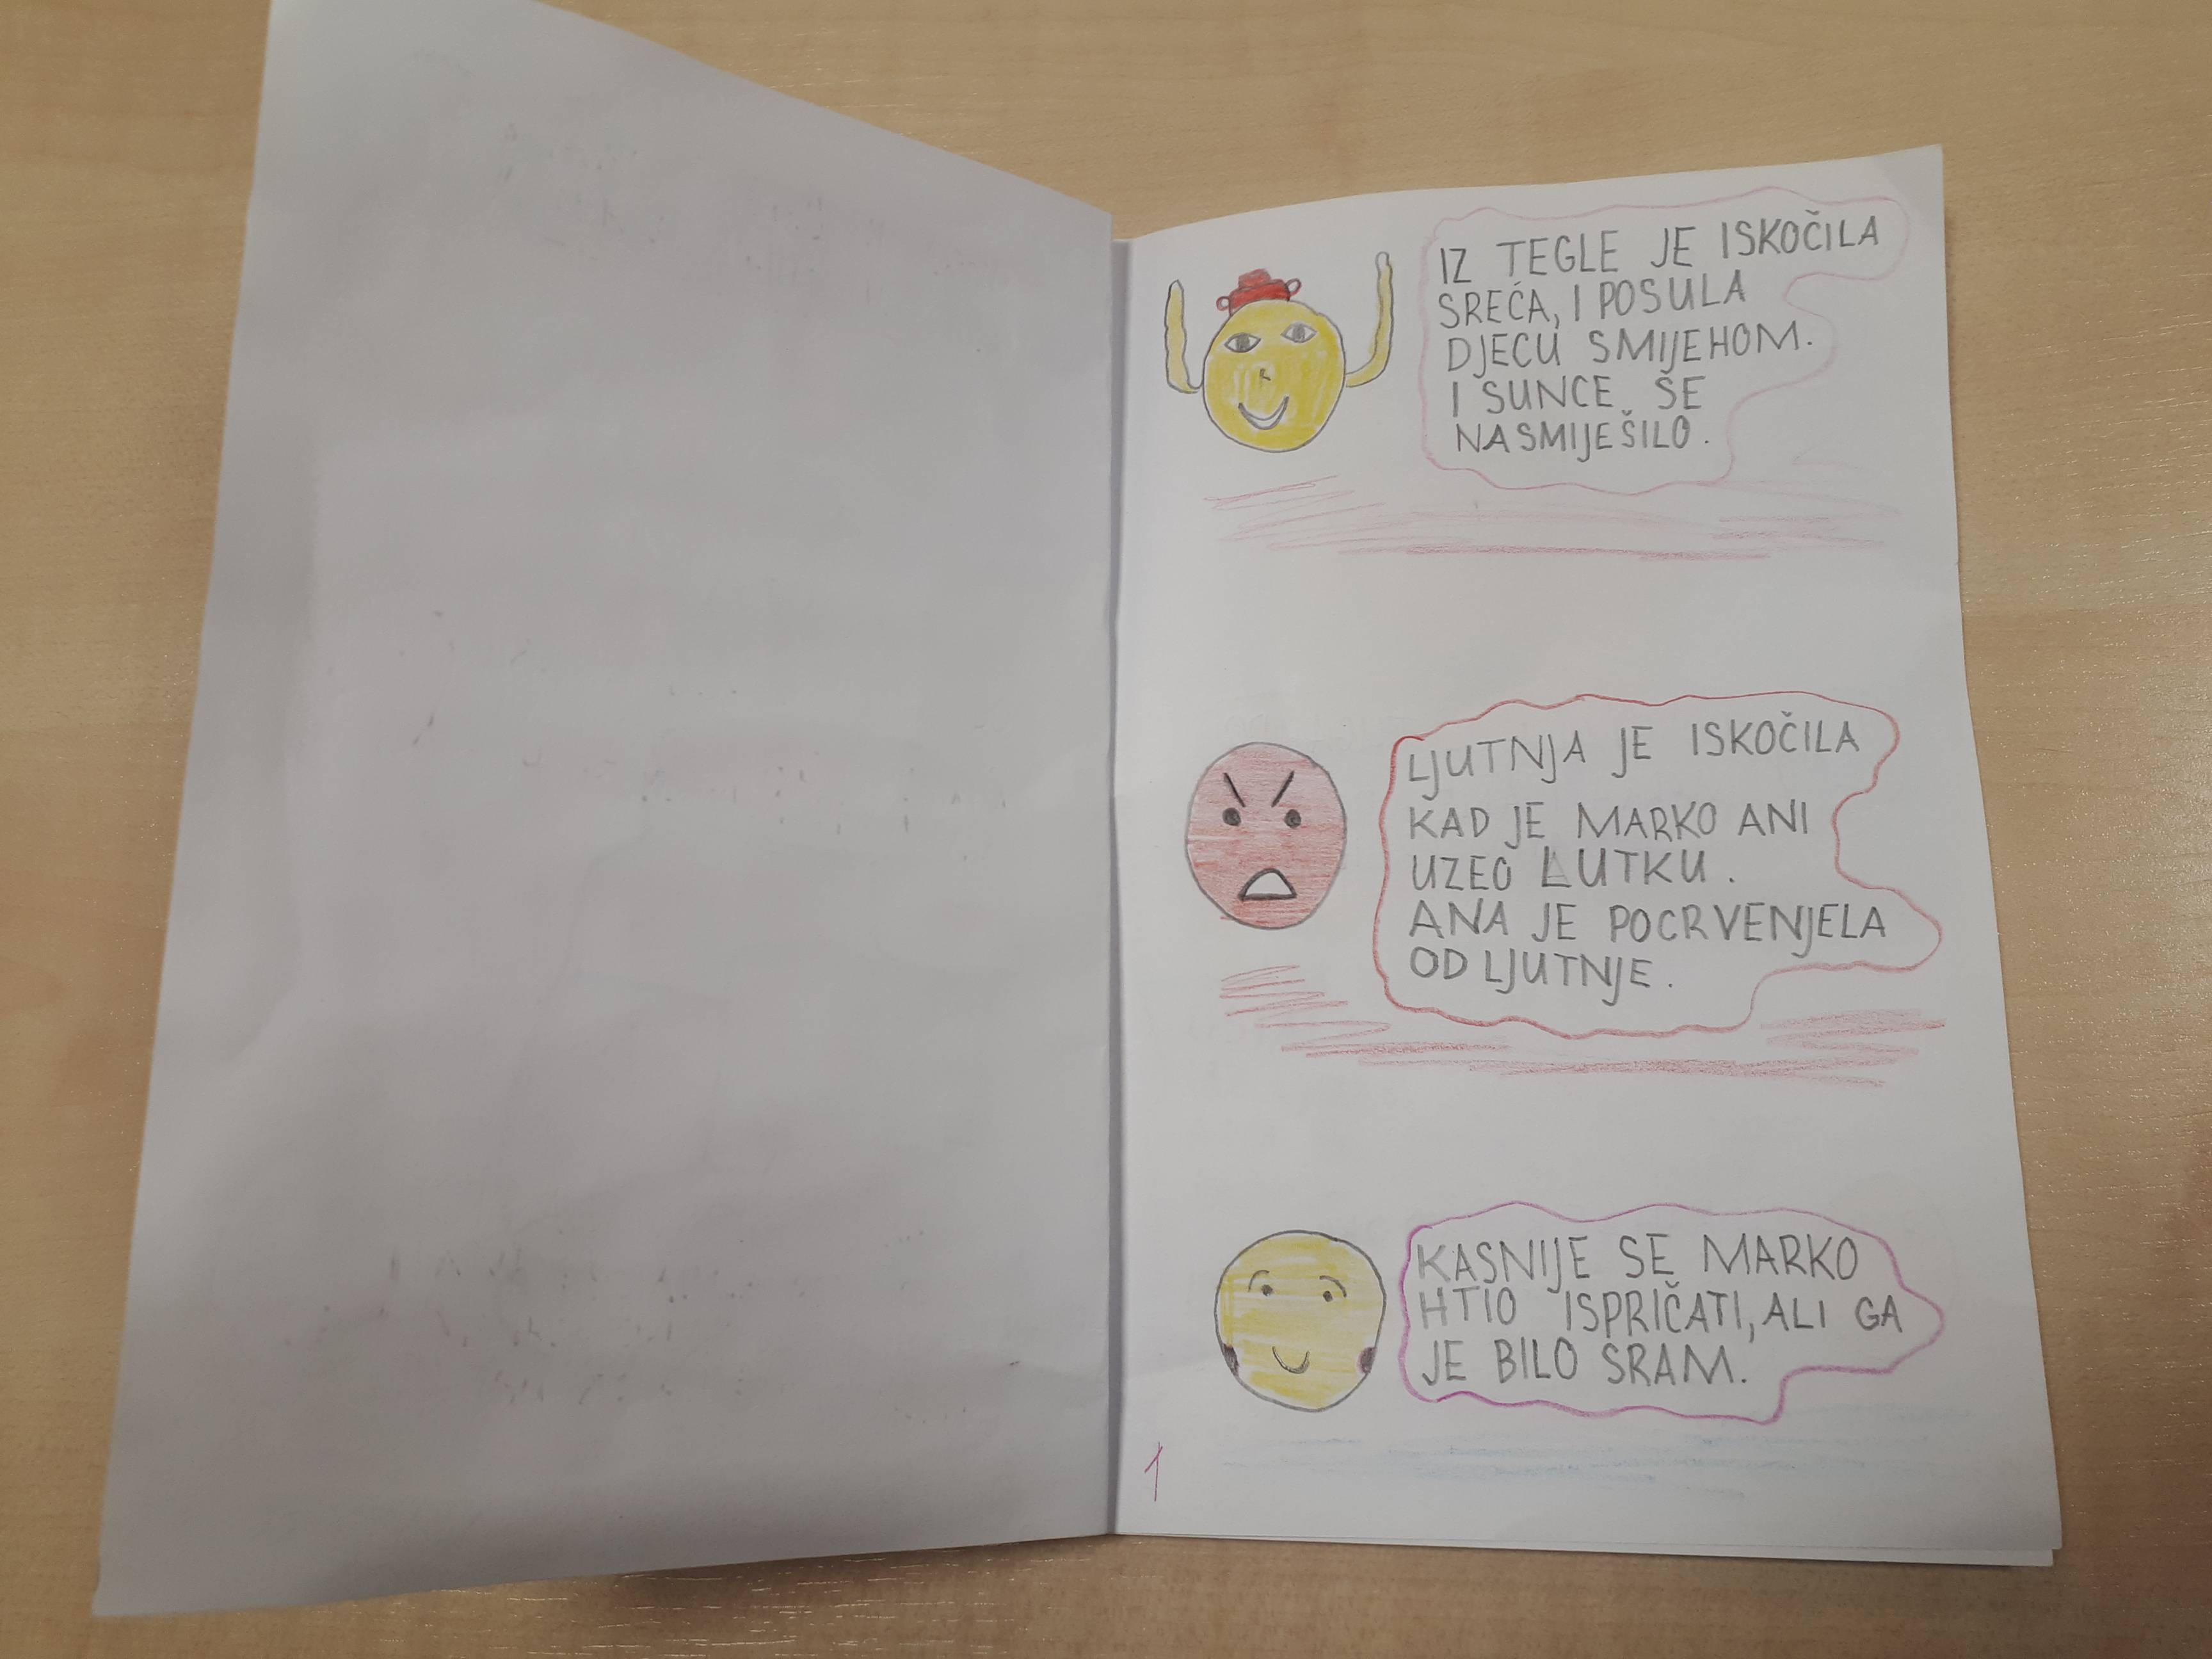 IZ TEGLE JE ISKOČILA
SREĆA, I POSULA
DJECU SMIJEHOM.
I SUNCE SE
NASMIJEŠILO.
LJUTNJA JE ISKOČILA
KAD JE MARKO ANI
UZEO LUTKU.
ANA JE POCRVENJELA
OD LJUTNJE.
KASNIJE SE MARKO
HTIO ISPRIČATI, ALI GA
JE BILO SRAM.
1